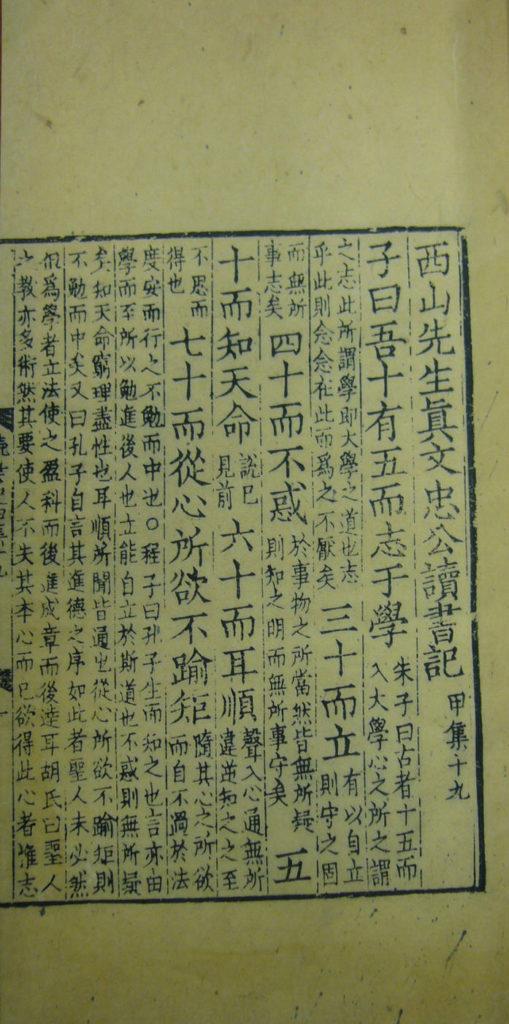 西山先生眞文忠公讀書記 甲集十九
子曰吾十有五而志于學 朱子曰古者十五而入大學心之所之謂
之志此所謂學即大學之道也志乎此則念念在此而爲之不厭矣 三十而立 有以自立則守之固
而無所事志矣 四十而不惑 於事物之所當然皆無所疑則知之明而無所事守矣 五
十而知天命 說已見前 六十而耳順 聲入心通無所違逆知之之至
不思而得也 七十而從心所欲不踰矩 隨其心之所欲而自不過於法
度安而行之不勉而中也○程子曰孔子生而知之也言亦由
學而至所以勉進後人也立能自立於斯道也不惑則無所疑
矣知天命窮理盡性也耳順所聞皆通也從心所欲不踰矩則
不勉而中矣又曰孔子自言其進德之序如此者聖人未必然
但爲學者立法使之盈科而後進成章而後達耳胡氏曰聖人
之教亦多術然其要使人不失其本心而已欲得此心者惟志